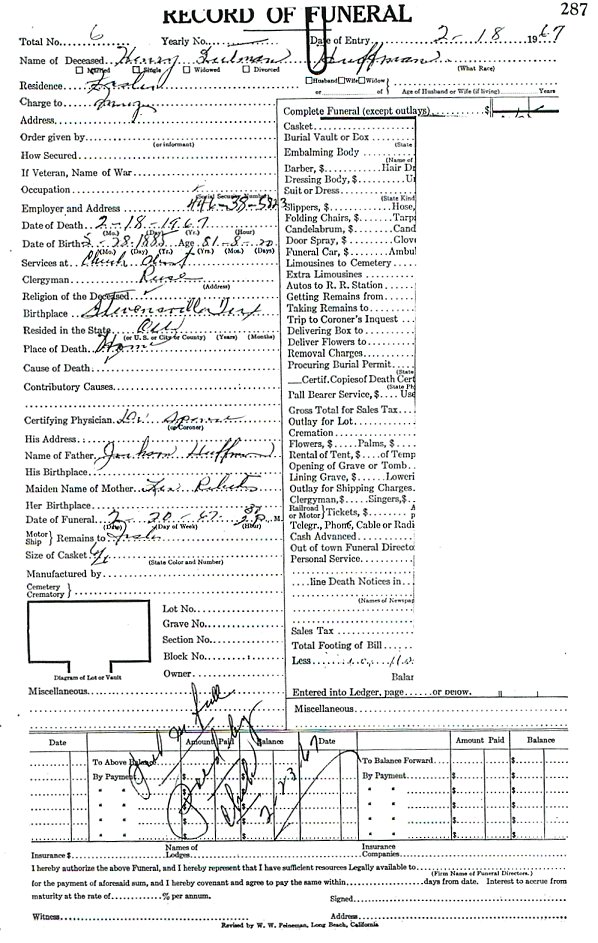 RECORD OF FUNERAL
287
Total No. 6 Yearly No. Date of Entry 2-18 1967
Name of Deceased Henry Huffman
Married Single Widowed Divorced (What Race)
Residence
Husband Wife Widow
or of Age of Husband or Wife (if living) Years
Charge to
Address
Order given by
(or informant)
How Secured
If Veteran, Name of War
Occupation
(Social Security Number)
Employer and Address
Date of Death 2-18-1967
(Mo.) (Day) (Yr.) (Hour)
Date of Birth 28-1885 Age 81-8-20
(Mo.) (Day) (Yr.) (Yrs.) (Mos.) (Days)
Services at Church
Clergyman
(Address)
Religion of the Deceased
Birthplace
Resided in the State
(or U. S. or City or County) (Years) (Months)
Place of Death Home
Cause of Death
Contributory Causes
Certifying Physician Dr
(or Coroner)
His Address
Name of Father Jackson Huffman
His Birthplace
Maiden Name of Mother
Her Birthplace
Date of Funeral 2-20-67 M.
(Date) (Day of Week) (Hour)
Motor Ship } Remains to
Size of Casket
(State Color and Number)
Manufactured by
Cemetery Crematory }
Lot No.
Grave No.
Section No.
Block No.
Owner
Diagram of Lot or Vault
Miscellaneous
Complete Funeral (except outlays) $
Casket
Burial Vault or Box
(State
Embalming Body
(Name of
Barber, $ Hair Dr
Dressing Body, $
Suit or Dress
(State Kind
Slippers, $ Hose,
Folding Chairs, $ Tarp
Candelabrum, $ Cand
Door Spray, $ Glov
Funeral Car, $ Ambu
Limousines to Cemetery
Extra Limousines
Autos to R. R. Station
Getting Remains from
Taking Remains to
Trip to Coroner's Inquest
Delivering Box to
Deliver Flowers to
Removal Charges
Procuring Burial Permit
(State
Certif. Copies of Death Cert
(State Ph
Pall Bearer Service, $ Use
Gross Total for Sales Tax
Outlay for Lot
Cremation
Flowers, $ Palms, $
Rental of Tent, $ of Temp
Opening of Grave or Tomb
Lining Grave, $ Loweri
Outlay for Shipping Charges
Clergyman, $ Singers, $
Railroad or Motor } Tickets, $
Telegr., Phone, Cable or Radi
Cash Advanced
Out of town Funeral Directo
Personal Service
line Death Notices in
(Names of Newspap
Sales Tax
Total Footing of Bill
Less
Balar
Entered into Ledger, page or below.
Miscellaneous
Date Amount Paid Balance Date Amount Paid Balance
To Above Balance To Balance Forward $
By Payment $ By Payment $
" " $ " " $
" " $ " " $
" " $ " " $
" " $ " " $
Paid in full
2-23-67
Insurance $ Names of Lodges Insurance Companies
I hereby authorize the above Funeral, and I hereby represent that I have sufficient resources Legally available to
(Firm Name of Funeral Directors.)
for the payment of aforesaid sum, and I hereby covenant and agree to pay the same within days from date. Interest to accrue from
maturity at the rate of % per annum.
Signed
Witness Address
Revised by W. W. Feineman, Long Beach, California